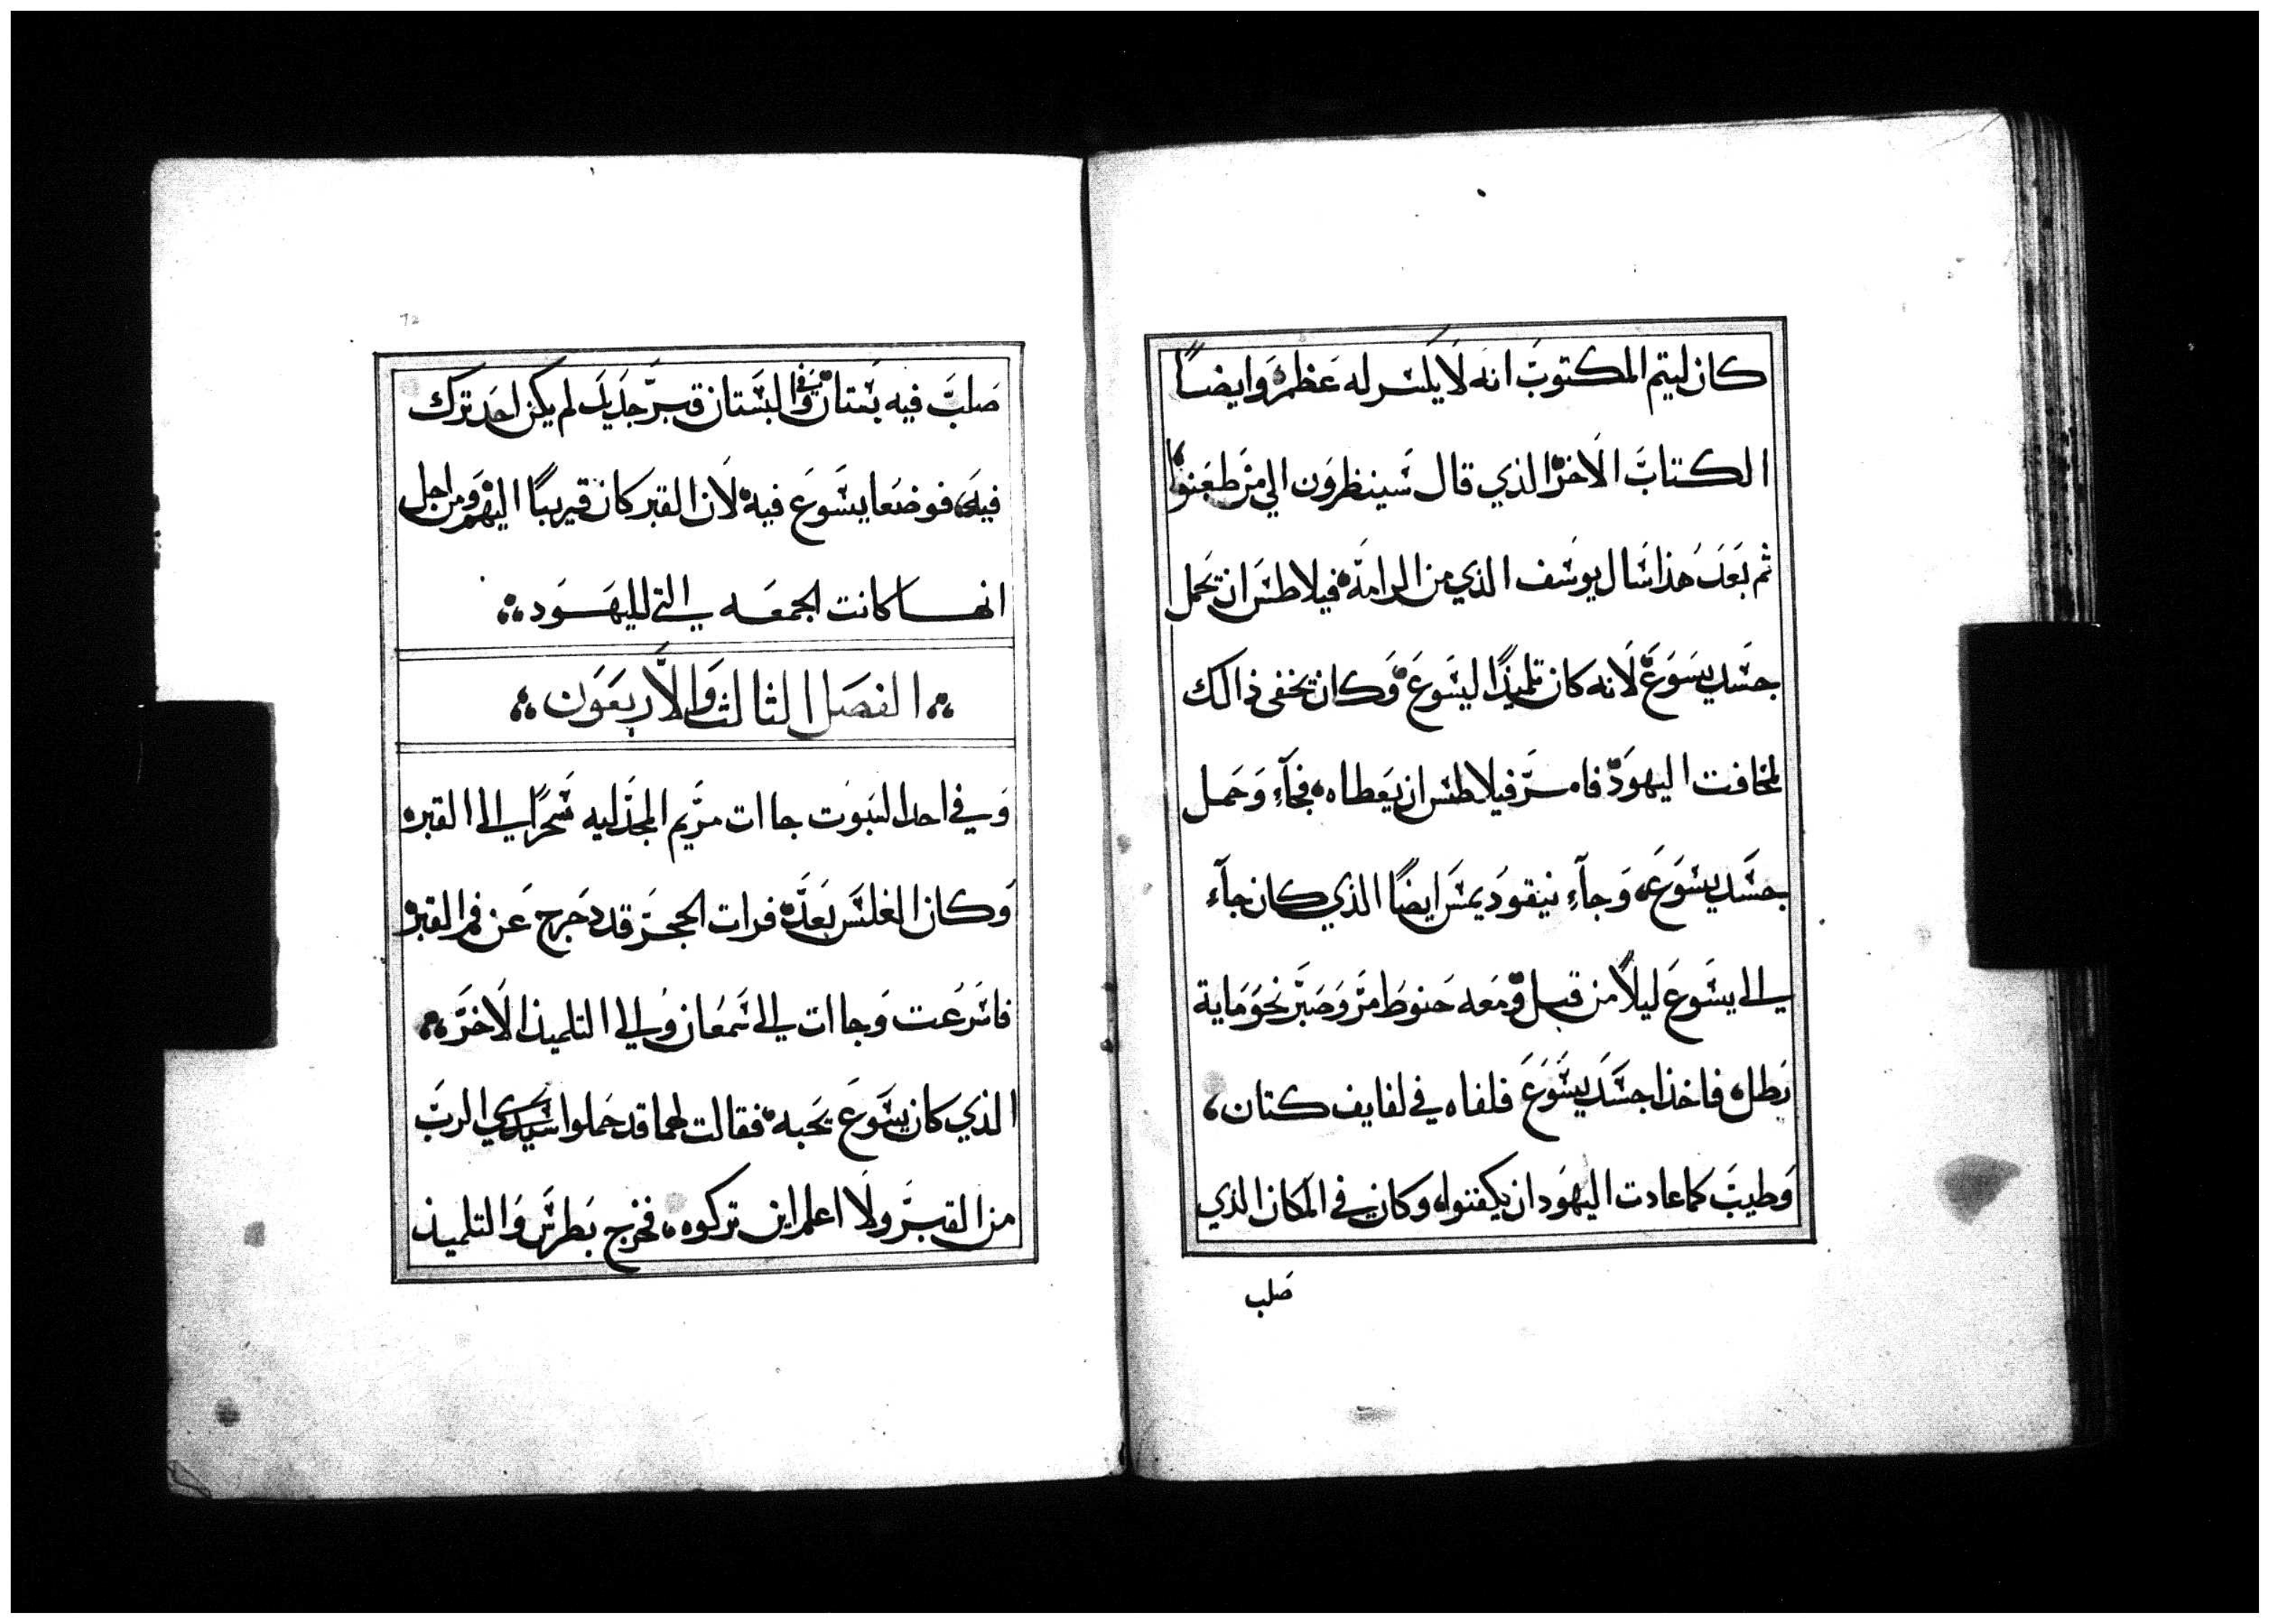 كان ليتم المكتوب انه لا يكسر له عظم وايضاً
الكتاب الاخر الذي قال سينظرون الي من طعنوا
ثم بعد هذا سال يوسف الذي من الرامة فيلاطس ان يحمل
جسد يسوع لانه كان تلميذاً ليسوع وكان يخفى ذالك
لمخافت اليهود فامر فيلاطس ان يعطاه فجآء وحمل
جسد يسوع وجآء نيقوديمس ايضاً الذي كان جآء
الي يسوع ليلاً من قبل ومعه حنوط مر وصبر نحو ماية
رطل فاخذا جسد يسوع فلفاه في لفايف كتان
وطيب كما عادت اليهود ان يكفنوا وكان في المكان الذي
صلب
صلب فيه بستان وفي البستان قبر جديد لم يكن احد ترك
فيه فوضعا يسوع فيه لان القبر كان قريباً اليهم ومن اجل
انها كانت الجمعه التي لليهود
الفصل الثالث والاربعون
وفي احد السبوت جاات مريم المجدليه سحراً الي القبر
وكان الغلس بعد فرات الحجر قد دحرج عن فم القبر
فاسرعت وجاات الي سمعان والي التلميذ الاخر
الذي كان يسوع يحبه فقالت لهما قد حملوا سيدي الرب
من القبر ولا اعلم اين تركوه فخرج بطرس والتلميذ